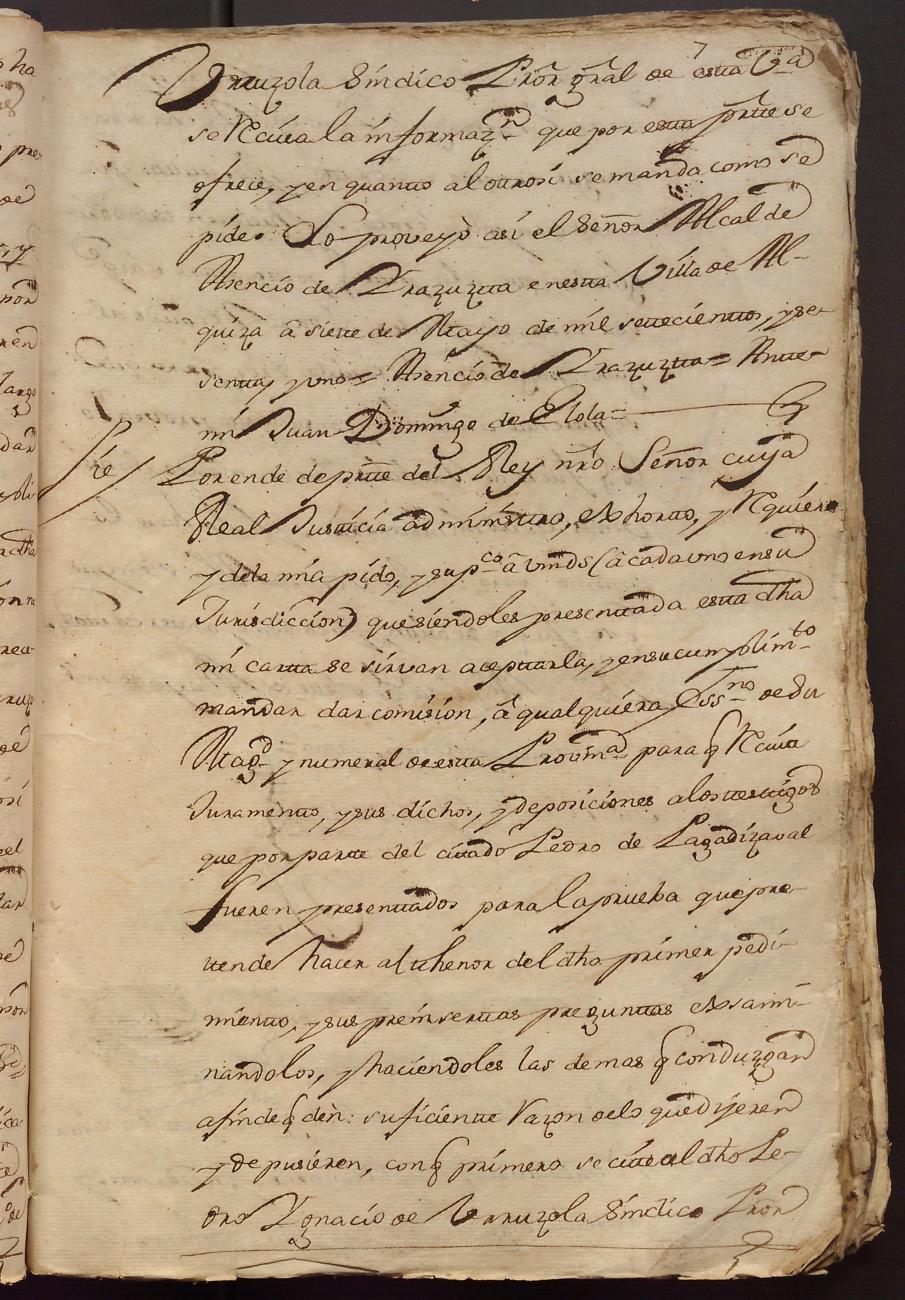 7
Vrruzola Síndico Prôr grâl de esta Va
se Reciva la informazn que por esta parte se
ofrece, y en quanto al otrosí se manda como se
pide. Lo proveyò así el Señor Alcalde
Asencio de Yrazuzta en esta Villa de Al-
quiza â siete de Mayo de mil settecientos, y se-
senta, y uno = Asencio de Yrazuzta = Ante
mí Juan Domingo de Elola =
Por ende de parte del Rey nrô Señor cuya
Real Justicia administro, exhorto, y Requiero
y de la mía pido, y supco â vmds (â cada uno en su
Jurisdiccion) que siéndoles presentada esta dha
mi carta se sirvan aceptarla, y en su cumplimto
mandar dar comisión, â qualquiera Essno de Su
Magd y numeral de esta Provina para q Reciva
Juramento, y sus dichos, y deposiciones a los testigos
que por parte del citado Pedro de Lagadizaval
fueren presentados para la prueba que pre-
tende hacer al thenor del dho primer pedi-
miento, y sus preinsertas preguntas exsami-
nandolos, y haciéndoles las demas q conduzgan
a fin de q dèn: suficiente razon de lo que dijeren
y depusieren, con q primero se cite al dho Pe-
dro Ygnacio de Vrruzola Síndico Prôr